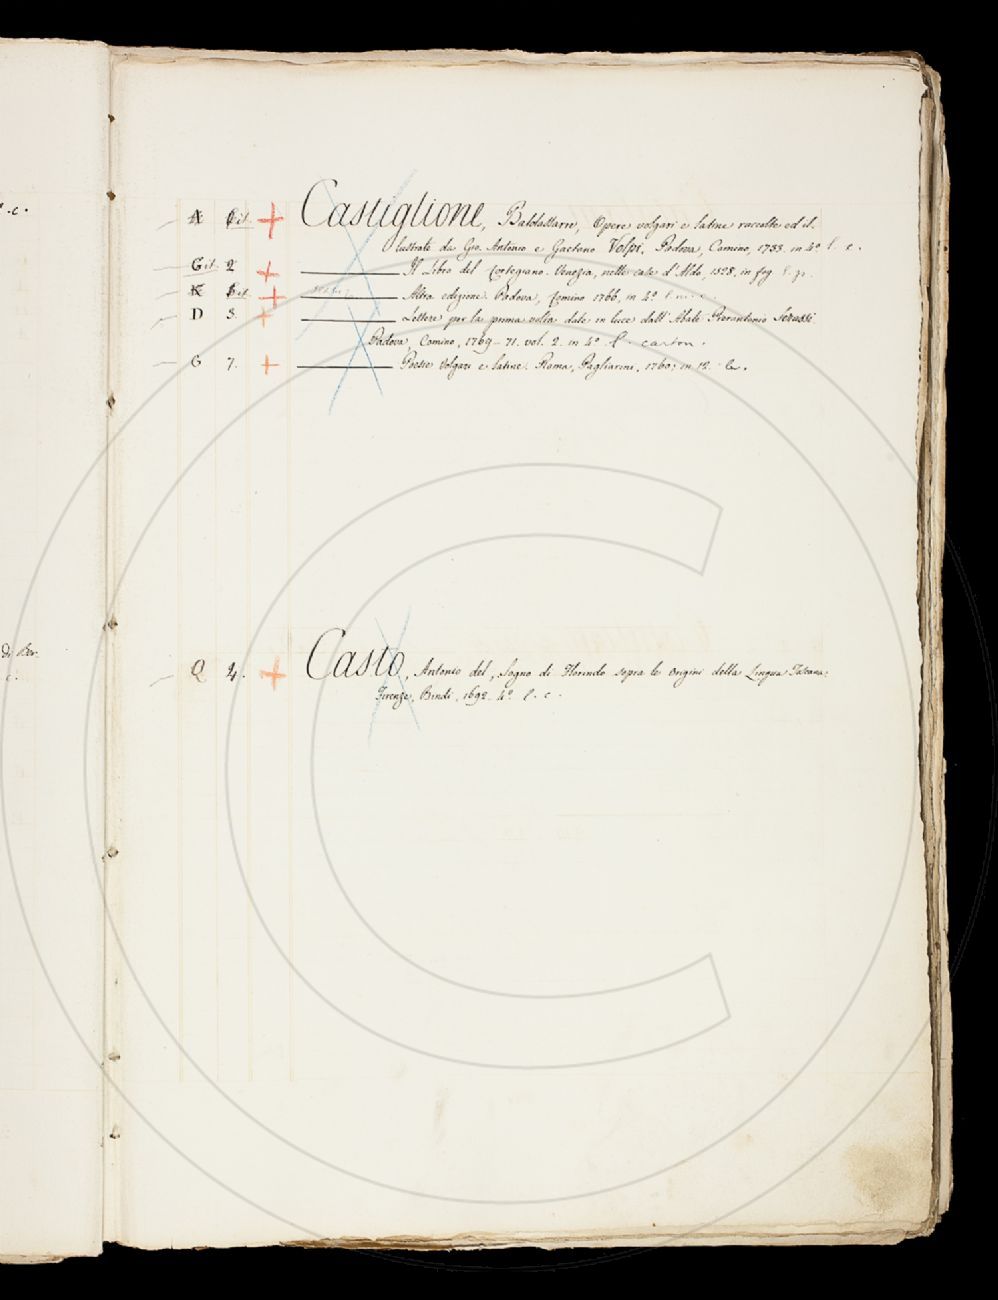 . c.
A Gil. + Castiglione, Baldassarre, Opere volgari e latine raccolte ed il-
lustrate da Gio. Antonio e Gaetano Volpi. Padova, Comino, 1733. in 4º l. c.
Gil. 2 + Il Libro del Cortegiano. Venezia, nelle case d'Aldo, 1528. in fog. l. p.
K Gil. + Altra edizione. Padova, Comino 1766, in 4º l. c.
D 3. + Lettere per la prima volta date in luce dall'Abate Pierantonio Serassi
Padova, Comino, 1769-71. vol. 2. in 4º l. carton.
G 7. + Poesie volgari e latine. Roma, Pagliarini, 1760; in 12.
di Ber.
c.
Q 4. + Casto, Antonio del, Sogno di Florindo sopra le origini della Lingua Toscana.
Firenze, Bindi, 1692. 4º l. c.
C